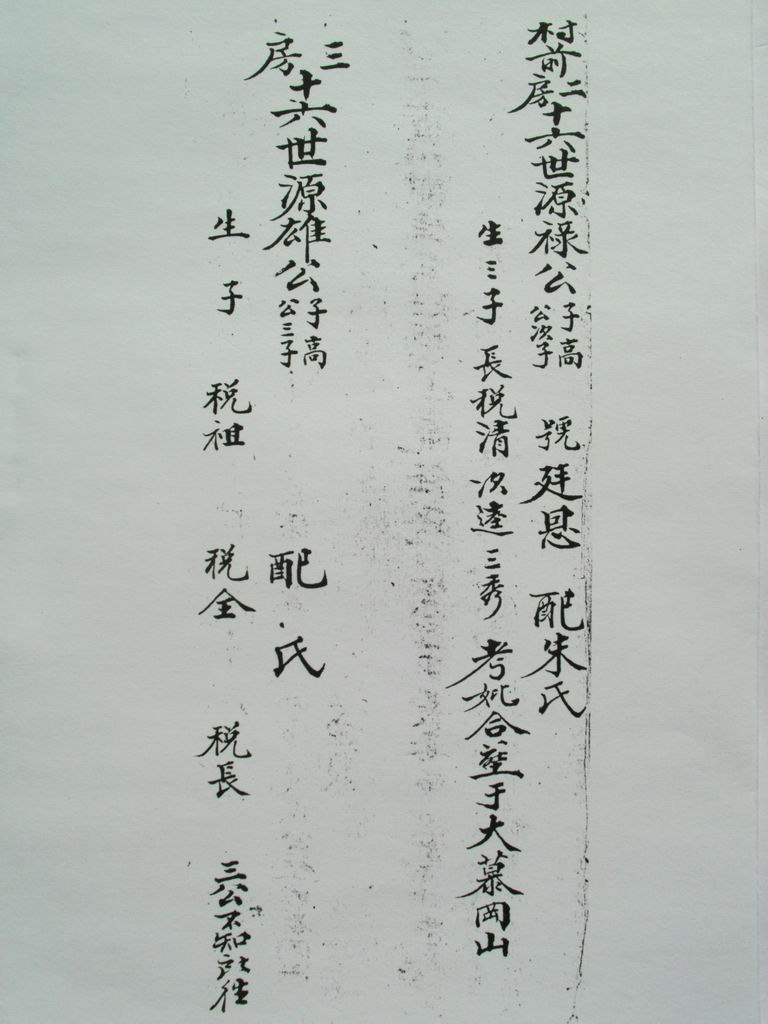 村前二房十六世源祿公子高公次子 號廷恩 配朱氏
生三子 長税清 次逵 三秀 考妣合塟于大慕岡山
三房十六世源雄公子高公三子 配 氏
生子 税祖 税全 税長 三公不知所往